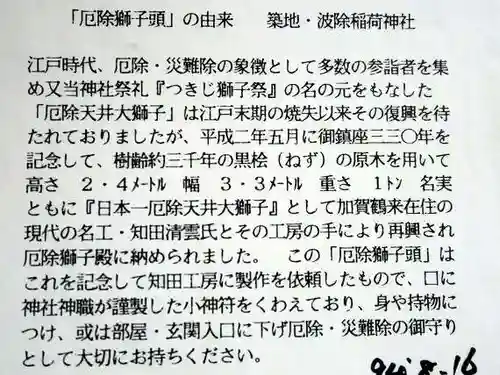 「厄除獅子頭」の由来　　築地・波除稲荷神社
江戸時代、厄除・災難除の象徴として多数の参詣者を集
め又当神社祭礼『つきじ獅子祭』の名の元をもなした
「厄除天井大獅子」は江戸末期の焼失以来その復興を待
たれておりましたが、平成二年五月に御鎮座三三〇年を
記念して、樹齢約三千年の黒桧（ねず）の原木を用いて
高さ　２・４ﾒｰﾄﾙ　幅　３・３ﾒｰﾄﾙ　重さ　１ﾄﾝ　名実
ともに『日本一厄除天井大獅子』として加賀鶴来在住の
現代の名工・知田清雲氏とその工房の手により再興され
厄除獅子殿に納められました。　この「厄除獅子頭」は
これを記念して知田工房に製作を依頼したもので、口に
神社神職が謹製した小神符をくわえており、身や持物に
つけ、或は部屋・玄関入口に下げ厄除・災難除の御守り
として大切にお持ちください。
94' 8-16